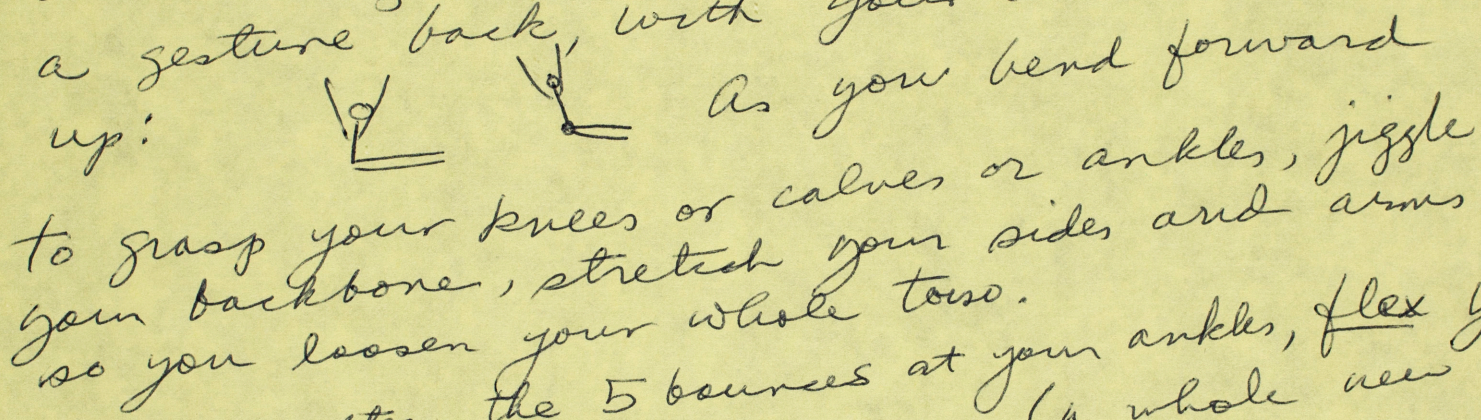 a gesture back, with your
up: As you bend forward
to grasp your knees or calves or ankles, jiggle
your backbone, stretch your sides and arms
so you loosen your whole torso.
the 5 bounces at your ankles, flex
(a whole new